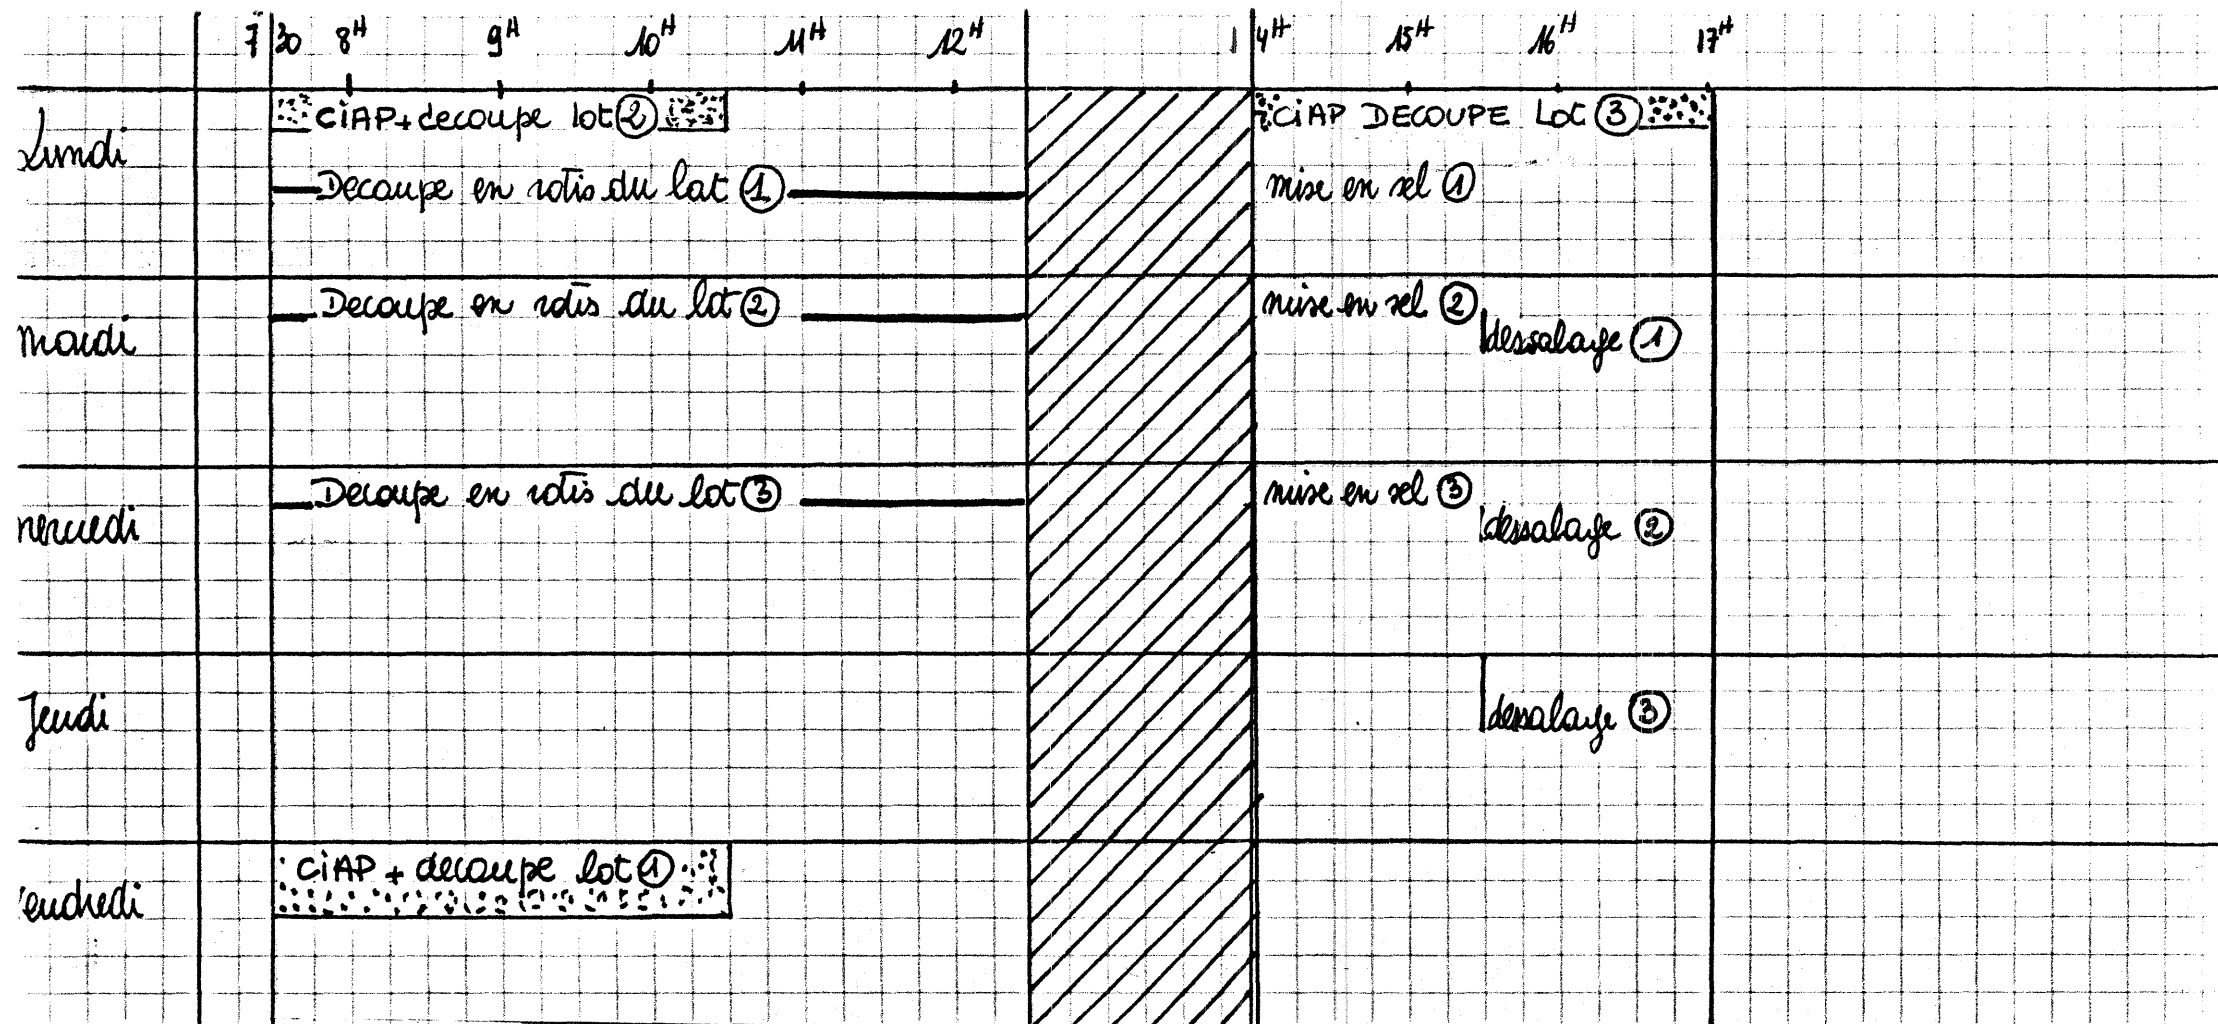 7 30 8H 9H 10H 11H 12H 14H 15H 16H 17H
Lundi
CiAP + decoupe lot 2
CiAP DECOUPE LOT 3
Decoupe en rotis du lot 1
mise en sel 1
mardi
Decoupe en rotis du lot 2
mise en sel 2
dessalage 1
mercredi
Decoupe en rotis du lot 3
mise en sel 3
dessalage 2
Jeudi
dessalage 3
endredi
CiAP + decoupe lot 1